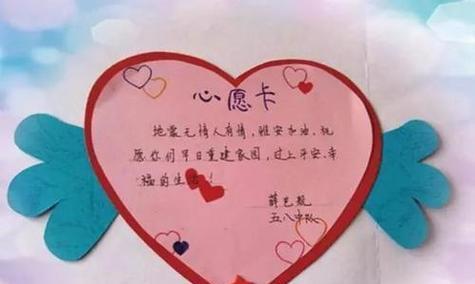 心愿卡
地震无情人有情，雅安加油，祝
愿你们早日重建家园，过上平安、幸
福的生活！
薛
五八中队